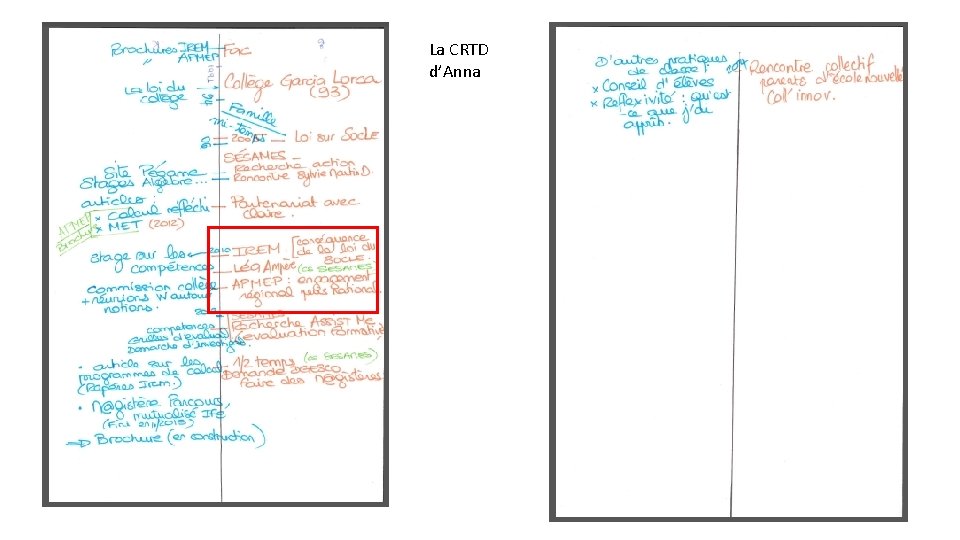 Brochures IREM
" APMEP
Fac
La loi du
collège
Collège Garcia Lorca
(93)
Famille
mi-temps
Loi sur SOCLE
SÉSAMES -
Recherche action
Rencontre Sylvie
Site Pégame
Stages Algèbre...
articles :
x calcul réfléchi
x MET (2012)
APMEP
Brochure
Partenariat avec
Claire.
Stage sur les
compétences
2010
IREM [conséquence
de la loi du
SOCLE.
Léa Ampère (cs SESAMES)
APMEP : engagement
régional puis national.
Commission collège
+ réunions
notions.
SESAMES
Recherche Assist Me
(évaluation formative)
compétences
d'évaluation
Démarche d'investigation.
• article sur les
programmes de calcul
(Repères Irem.)
1/2 temps (cs SESAMES)
Demande DEESCO
faire des Magistères
• Magistère Parcours
mutualisé IFÉ
(Fini en 11/2015)
→ Brochure (en construction)
La CRTD
d'Anna
D'autres pratiques
de classe :
x Conseil d'élèves
x Réflexivité : qu'est
-ce que j'ai
appris.
Rencontre collectif
parents d'école nouvelle
Col' innov.